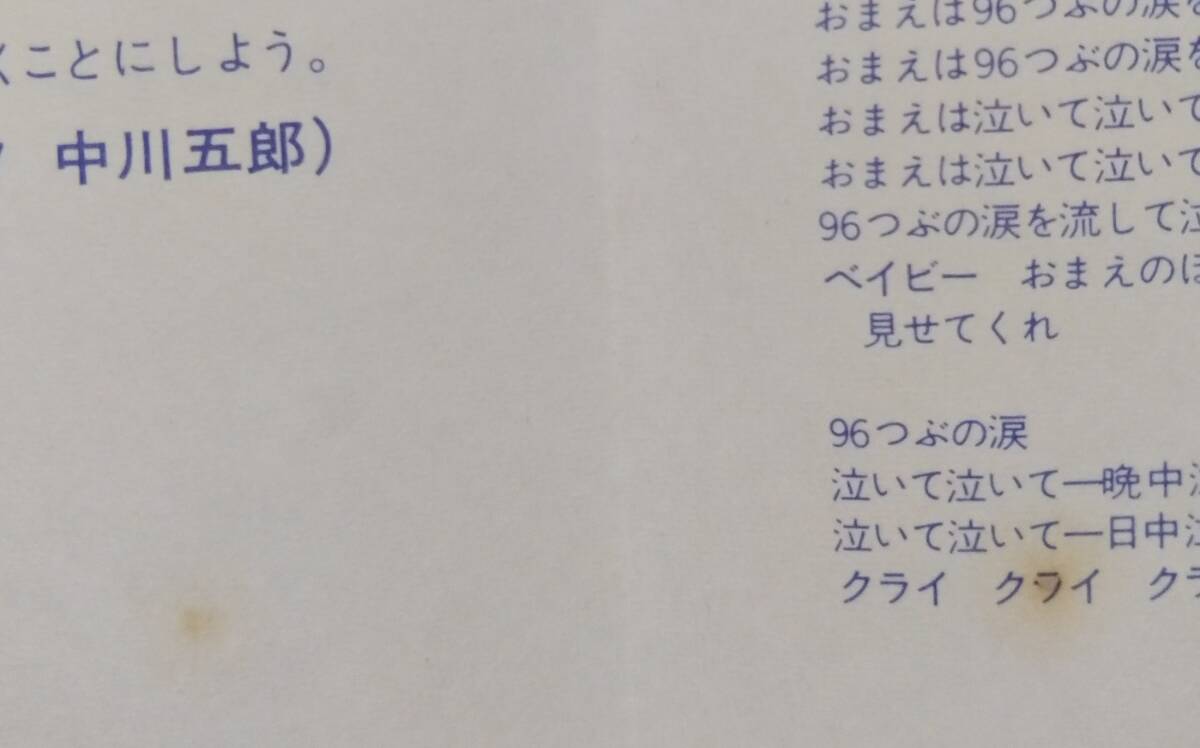 くことにしよう。
中川五郎)
おまえは96つぶの涙を
おまえは96つぶの涙を
おまえは泣いて泣いて
おまえは泣いて泣いて
96つぶの涙を流して泣
ベイビー　おまえのほ
見せてくれ
96つぶの涙
泣いて泣いて一晩中泣
泣いて泣いて一日中泣
クライ　クライ　クラ